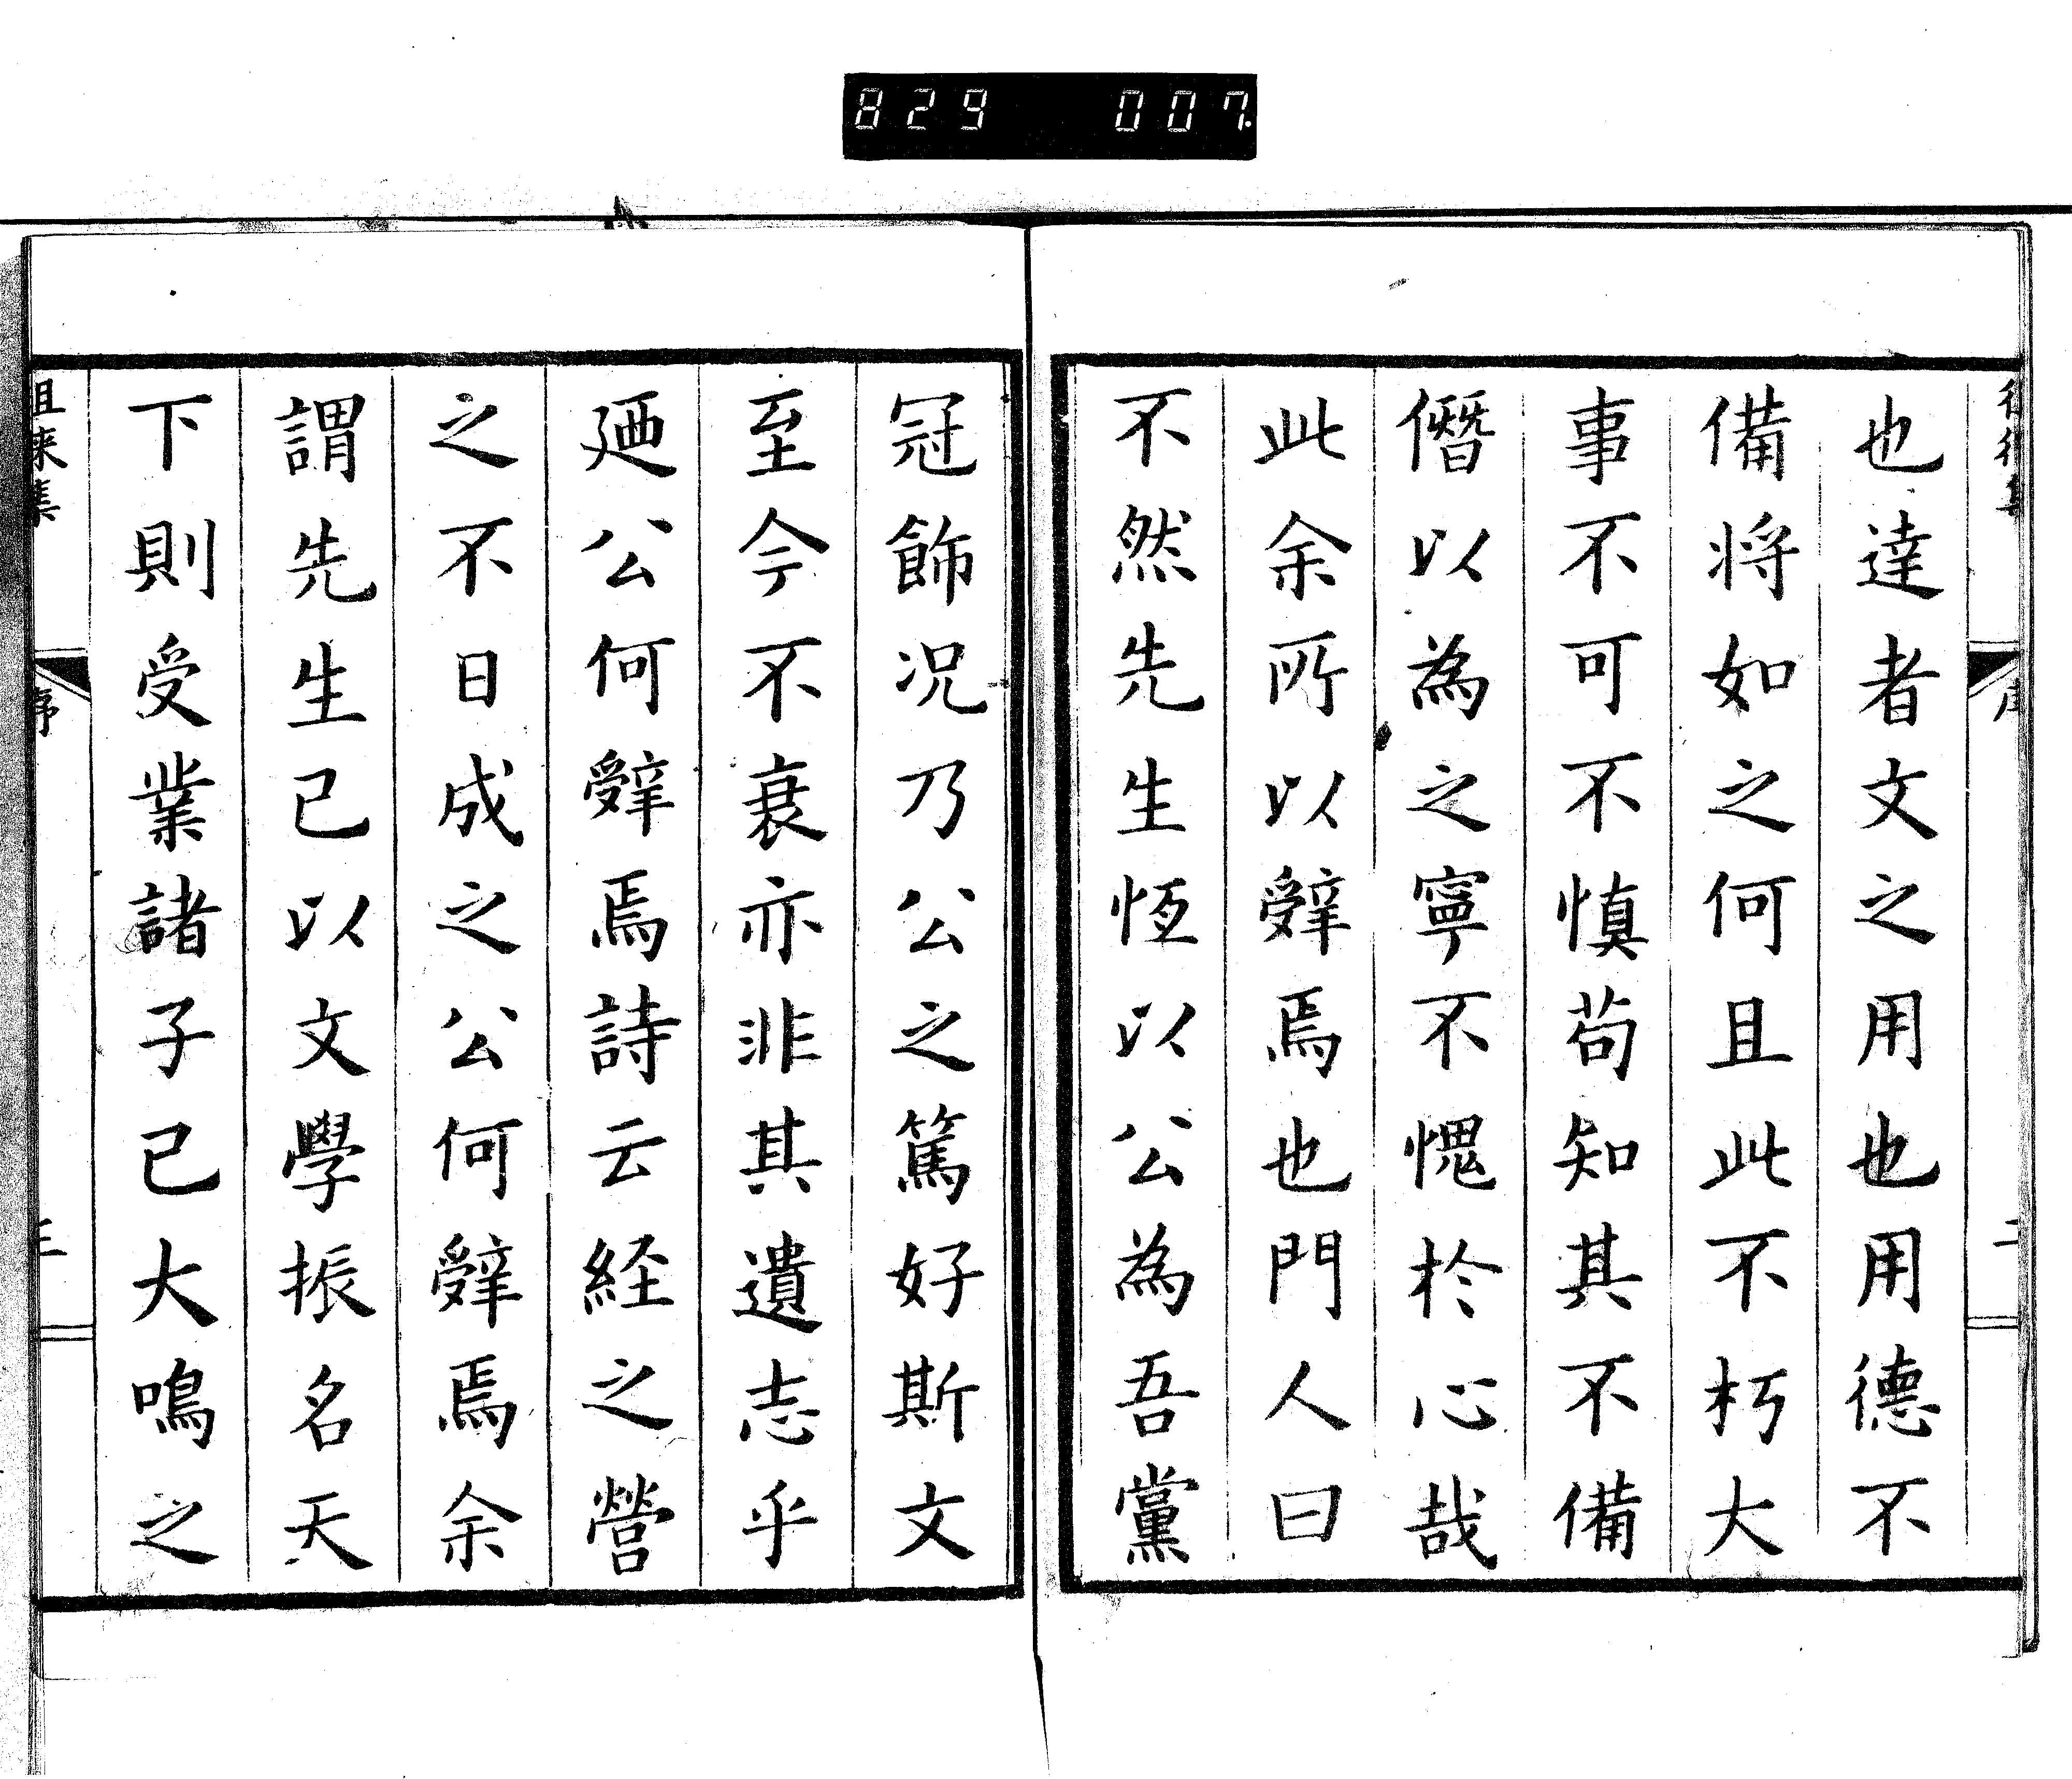 829 007.
也達者文之用也用德不
備将如之何且此不朽大
事不可不慎苟知其不備
僭以為之寧不愧於心哉
此余所以辤焉也門人曰
不然先生恆以公為吾黨
冠飾况乃公之篤好斯文
至今不衰亦非其遺志乎
廼公何辤焉詩云経之營
之不日成之公何辤焉余
謂先生已以文學振名天
下則受業諸子已大鳴之
徂徠集
序
三